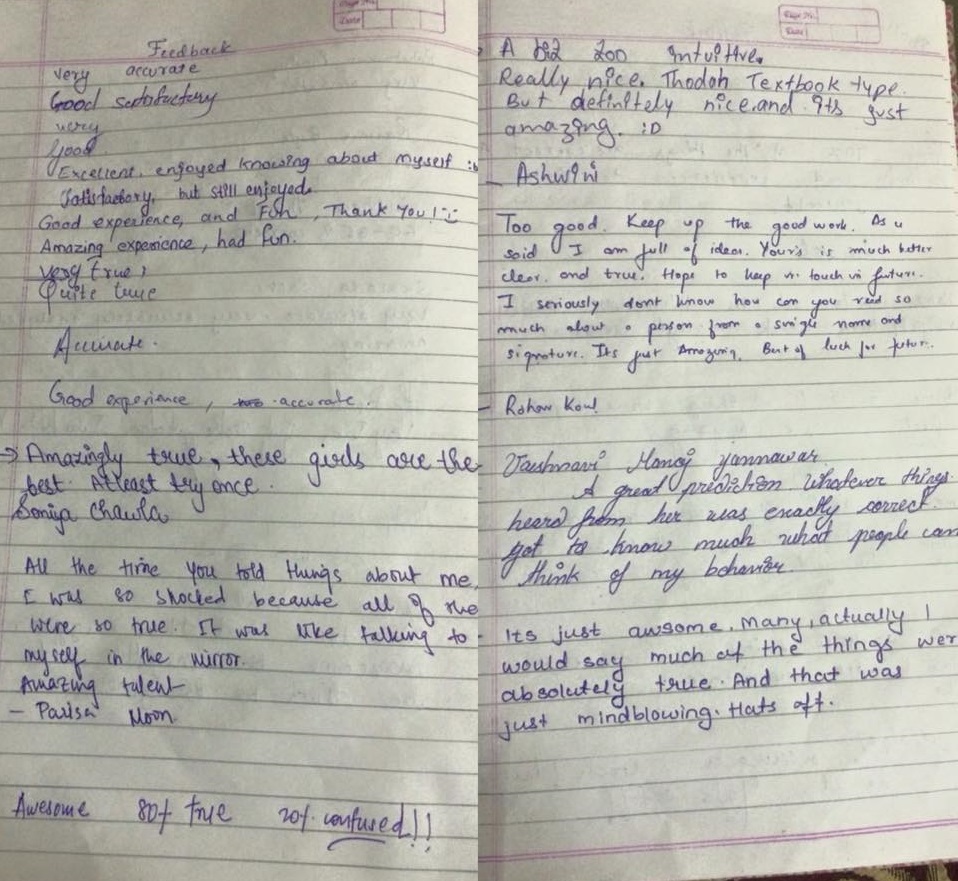 Feedback
very accurate
Good satisfactory
very
good
Excellent, enjoyed knowing about myself :)
Satisfactory, but still enjoyed.
Good experience, and Fun, Thank You!
Amazing experience, had fun.
very true,
Quite true
Accurate.
Good experience, accurate.
→ Amazingly true, these girls are the
best. Atleast try once.
Soniya Chawla
All the time you told things about me,
I was so shocked because all of the
were so true. It was like talking to
myself in the mirror.
Amazing talent
- Parisa Noon
Awesome 80% true 20% confused!!
A bit too intuitive.
Really nice. Thodoh Textbook type.
But definitely nice.and its just
amazing. :D
- Ashwini
Too good. Keep up the good work. As u
said I am full of ideas. Your's is much better
clear. and true. Hope to keep in touch in future.
I seriously dont know how can you read so
much about a person from a single name and
signature. Its just Amazing. Best of luck for futur.
- Rohan Koul
Vaishnavi Manoj Yannawar
A great prediction whatever things
heard from her was exactly correct.
got to know much what people can
think of my behavior
Its just awsome, many, actually I
would say much of the things wer
absolutely true. And that was
just mindblowing. Hats off.